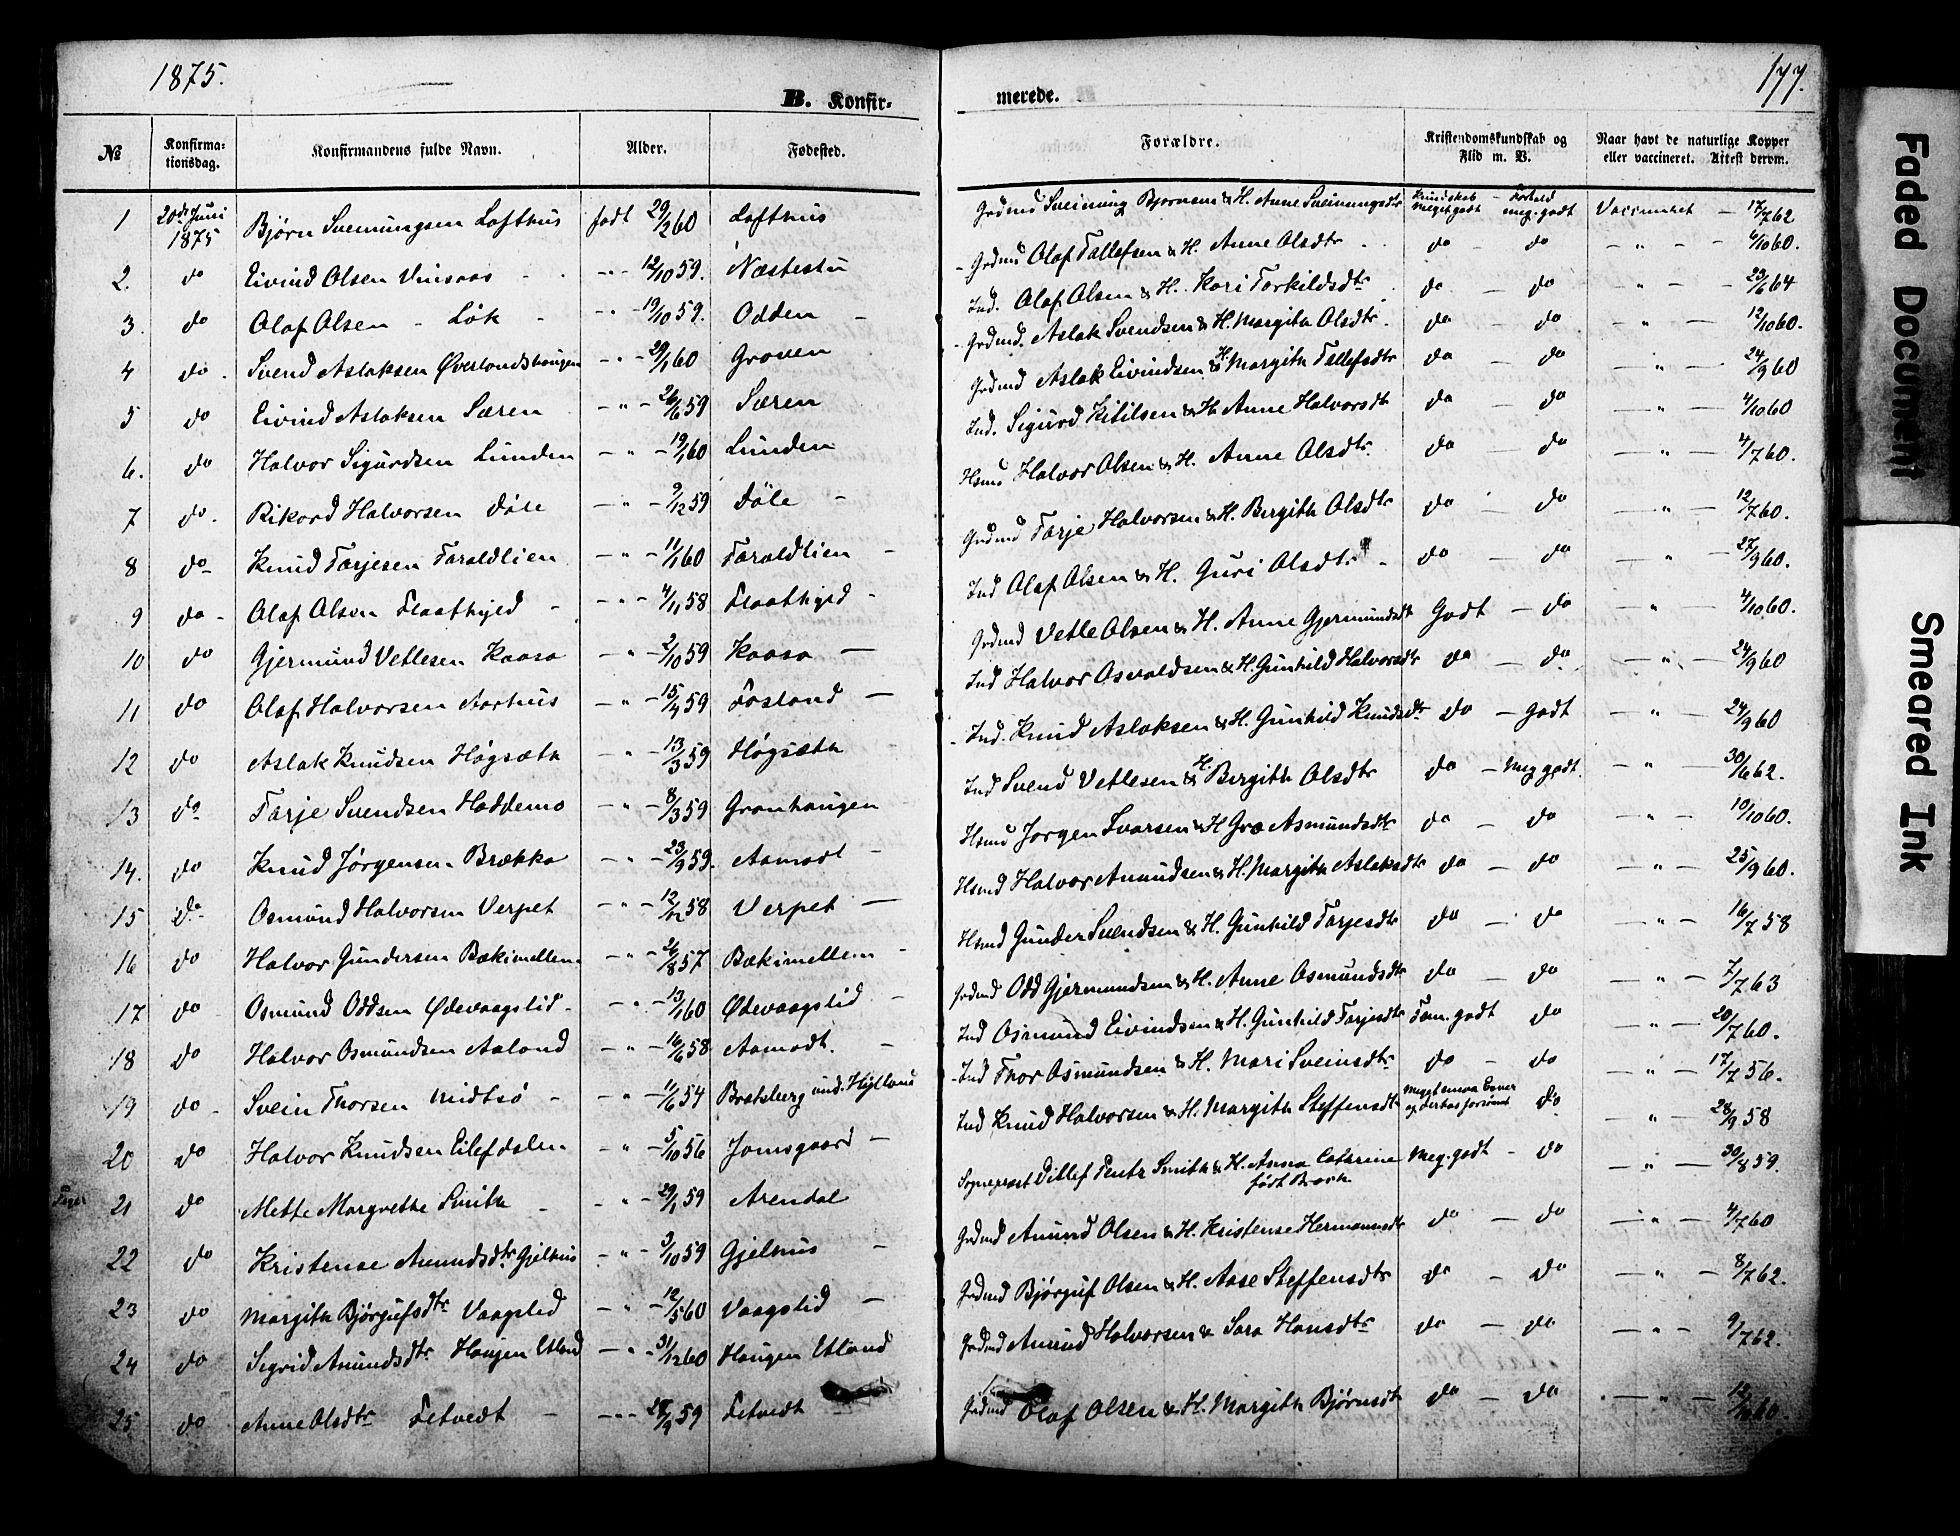 1875.
177.
B. Konfir-
merede.
№ Konfirma-tionsdag. Konfirmandens fulde Navn. Alder. Fødested. Forældre. Kristendomskundskab og Flid m. V. Naar havt de naturlige Kopper eller vaccineret. Attest derom.
1 20de Juni 1875 Bjørn Sveinungsen Lofthus født 29/2 60 Lofthus Grdmd Sveinung Bjørnsen & H. Anne Sveinungsdtr Kundskab Meget godt – Forhold meg. godt Vaccineret – 17/7 62
2. do Eivind Olsen Vinsaas – " – 12/10 59. Næstestu Grdmd Olaf Tallefsen & H. Anne Olsdtr do – do – " – 4/10 60.
3. do Olaf Olsen – Løk – " – 19/10 59. Odden – Ind. Olaf Olsen & H. Kari Torkildsdtr do – do – " – 23/6 64
4 do. Svend Aslaksen Øverlandshaugen – " – 29/1 60 Groven Grdmd. Aslak Svendsen & H. Margith Olsdtr. do – do – " – 12/10 60.
5 do Eivind Aslaksen Særen – " – 26/6 59 Særen Grdmd Aslak Eivindsen & H. Margith Tallefsdtr do – do – " – 24/9 60
6. do Halvor Sigurdsen Lunden – " – 19/1 60 Lunden Ind. Sigurd Kitilsen & H. Anne Halvorsdtr do – do – " – 4/10 60
7 do. Rikard Halvorsen Døle – " – 9/12 59 Døle – Hsmd Halvor Olsen & H. Anne Olsdtr. do – do – " – 4/7 60.
8 do Knud Tarjesen Taraldlien – " – 11/1 60 Taraldlien – Grdmd Tarje Halvorsen & H. Bergith Olsdtr do – do – " – 12/7 60.
9 do – Olaf Olsen Flaathyld – – " – 4/11 58 Flaathyld – Ind Olaf Olsen & H. Guri Olsdtr – do – do – " – 27/9 60.
10 do Gjermund Vetlesen Kaasa – " – 2/10 59 Kaasa – Grdmd Vetle Olsen & H. Anne Gjermundsdtr Godt – do – " – 4/10 60.
11 do Olaf Halvorsen Aarhus – " – 15/4 59 Fosland – Ind Halvor Osvaldsen & H. Gunhild Halvorsdtr do – do – " – 24/9 60
12 do Aslak Knudsen Høgsæth – " – 13/3 59 Høgsæth Ind. Knud Aslaksen & H. Gunhild Knudsdtr do – godt – " – 24/9 60
13 do Tarje Svendsen Haddemo – " – 8/3 59 Granhaugen Ind Svend Vetlesen & H. Bergith Olsdtr do – Meg godt. – " – 30/6 62.
14. do Knud Jørgensen Brække – " – 23/9 59. Aamodt – Hsmd Jørgen Ivarsen & H Gro Asmundsdtr do – do – " – 10/10 60.
15 do Osmund Halvorsen Verpet – " – 12/12 58 Verpet – Hsmd Halvor Amundsen & H. Margith Aslaksdtr do – do – " – 25/9 60.
16 do Halvor Gundersen Bækimellem – " – 26/8 57 Bækimellem – Hsmd Gunder Svendsen & H. Gunhild Tarjesdtr do – do – " – 16/7 58
17 do Osmund Oddsen Ødevaagslid – " – 13/1 60 Ødevaagslid – Grdmd Odd Gjermundsen & H. Anne Osmundsdtr do – do – " – 7/7 63
18 do Halvor Osmundsen Aaland – " – 16/6 58 Aamodt. – Ind Osmund Eivindsen & H. Gunhild Tarjesdtr Tem. godt do – " – 20/7 60.
19 do – Svein Thorsen Midtsø – – " – 11/6 54 Bratsberg und. Hytland Ind Thor Osmundsen & H. Mari Sveinsdtr do – do – " – 17/7 56.
20 do Halvor Knudsen Eilefdalen – " – 5/10 56 Jomsgaard – Ind Knud Halvorsen & H. Margith Steffensdtr Meget smaa Evner og derhos forsømt do – " – 28/9 58
21 do Mette Margrethe Smith – " – 29/1 59 Arendal Sogneprest Ditlef Smith & H. Anna Catarine født Meg. godt – do – " – 30/8 59.
22 do Kristense Amundsdtr Gjelhus – " – 3/10 59 Gjelhus – Grdmd Amund Olsen & H. Kristense Hermansdtr do – do – " – 4/7 60
23 do Margith Bjørgufsdtr Vaagslid – " – 12/5 60 Vaagslid – Grdmd Bjørguf Olsen & H. Aase Steffensdtr do – do – " – 8/7 62.
24 do Sigrid Amundsdtr Haugen Utland – " – 31/12 60 Haugen Utland Grdmd Amund Halvorsen & Sara Hansdtr do – do – " – 9/7 62.
25 do Anne Olsdtr Fetvedt – – " – 28/9 59 Fetvedt Grdmd Olaf Olsen & H. Margith Bjørnsdtr do – do – " – 12/10 60.
Faded Document
Smeared Ink